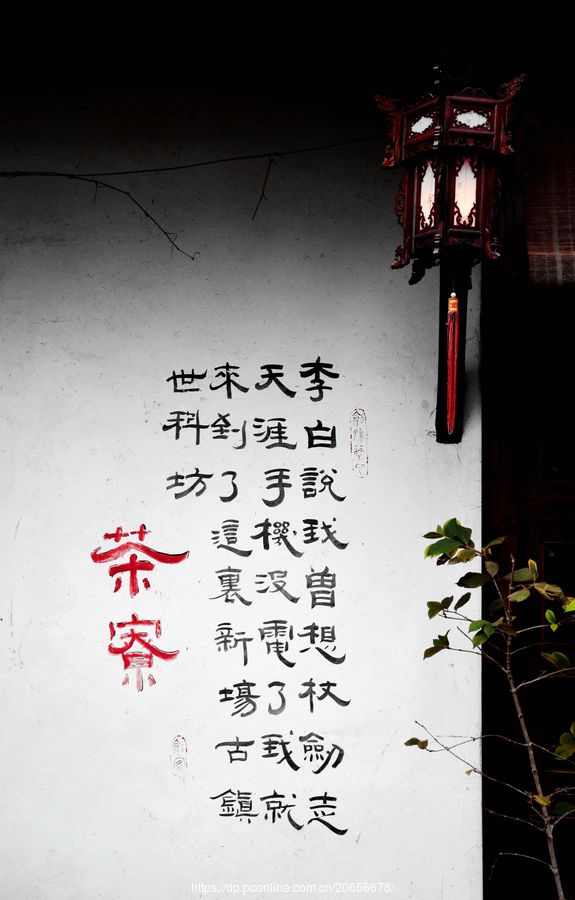 李白說我曾想杖劍志
天涯手機没電了我就
來到了這裏新場古鎮
世科坊
茶寮
https://dp.pconline.com.cn/20656678/